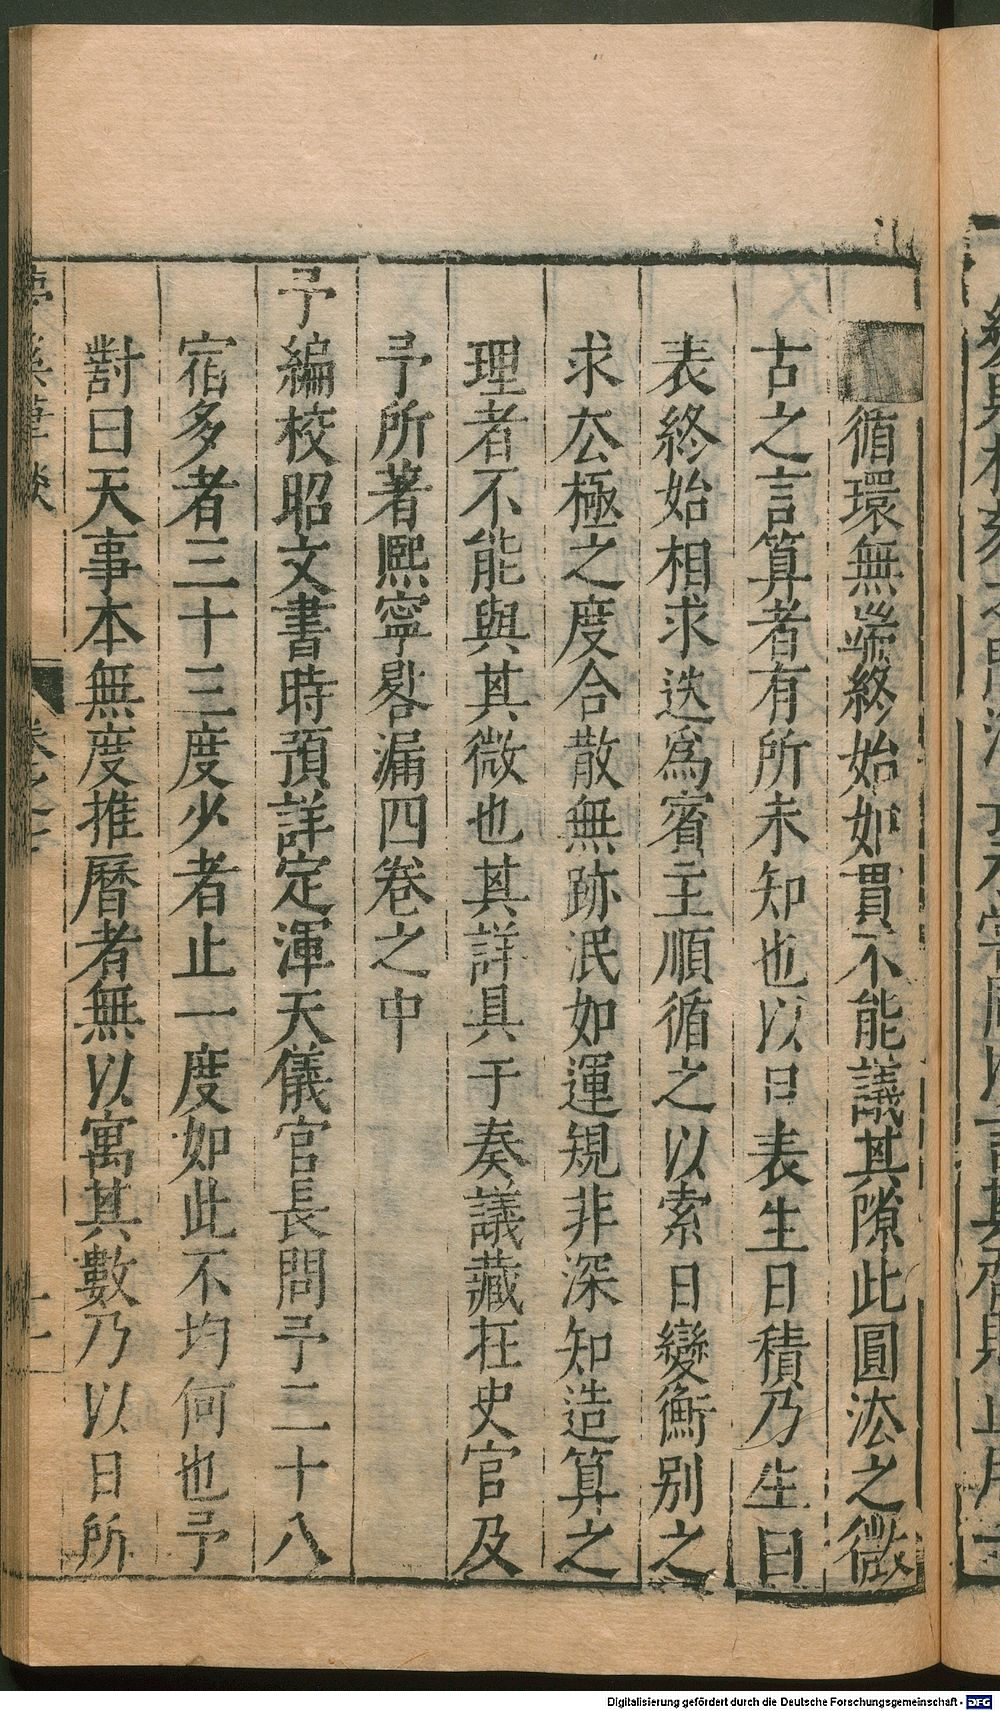 循環無端終始如貫不能議其隙此圓法之微
古之言算者有所未知也以日表生日積乃生日
表終始相求迭爲賓主順循之以索日變衡别之
求去極之度合散無跡泯如運規非深知造算之
理者不能與其微也其詳具于奏議藏在史官及
予所著熈寧晷漏四卷之中
予編校昭文書時預詳定渾天儀官長問予二十八
宿多者三十三度少者止一度如此不均何也予
對曰天事本無度推曆者無以寓其數乃以日所
夢溪筆談
卷之七
十一
Digitalisierung gefördert durch die Deutsche Forschungsgemeinschaft - DFG